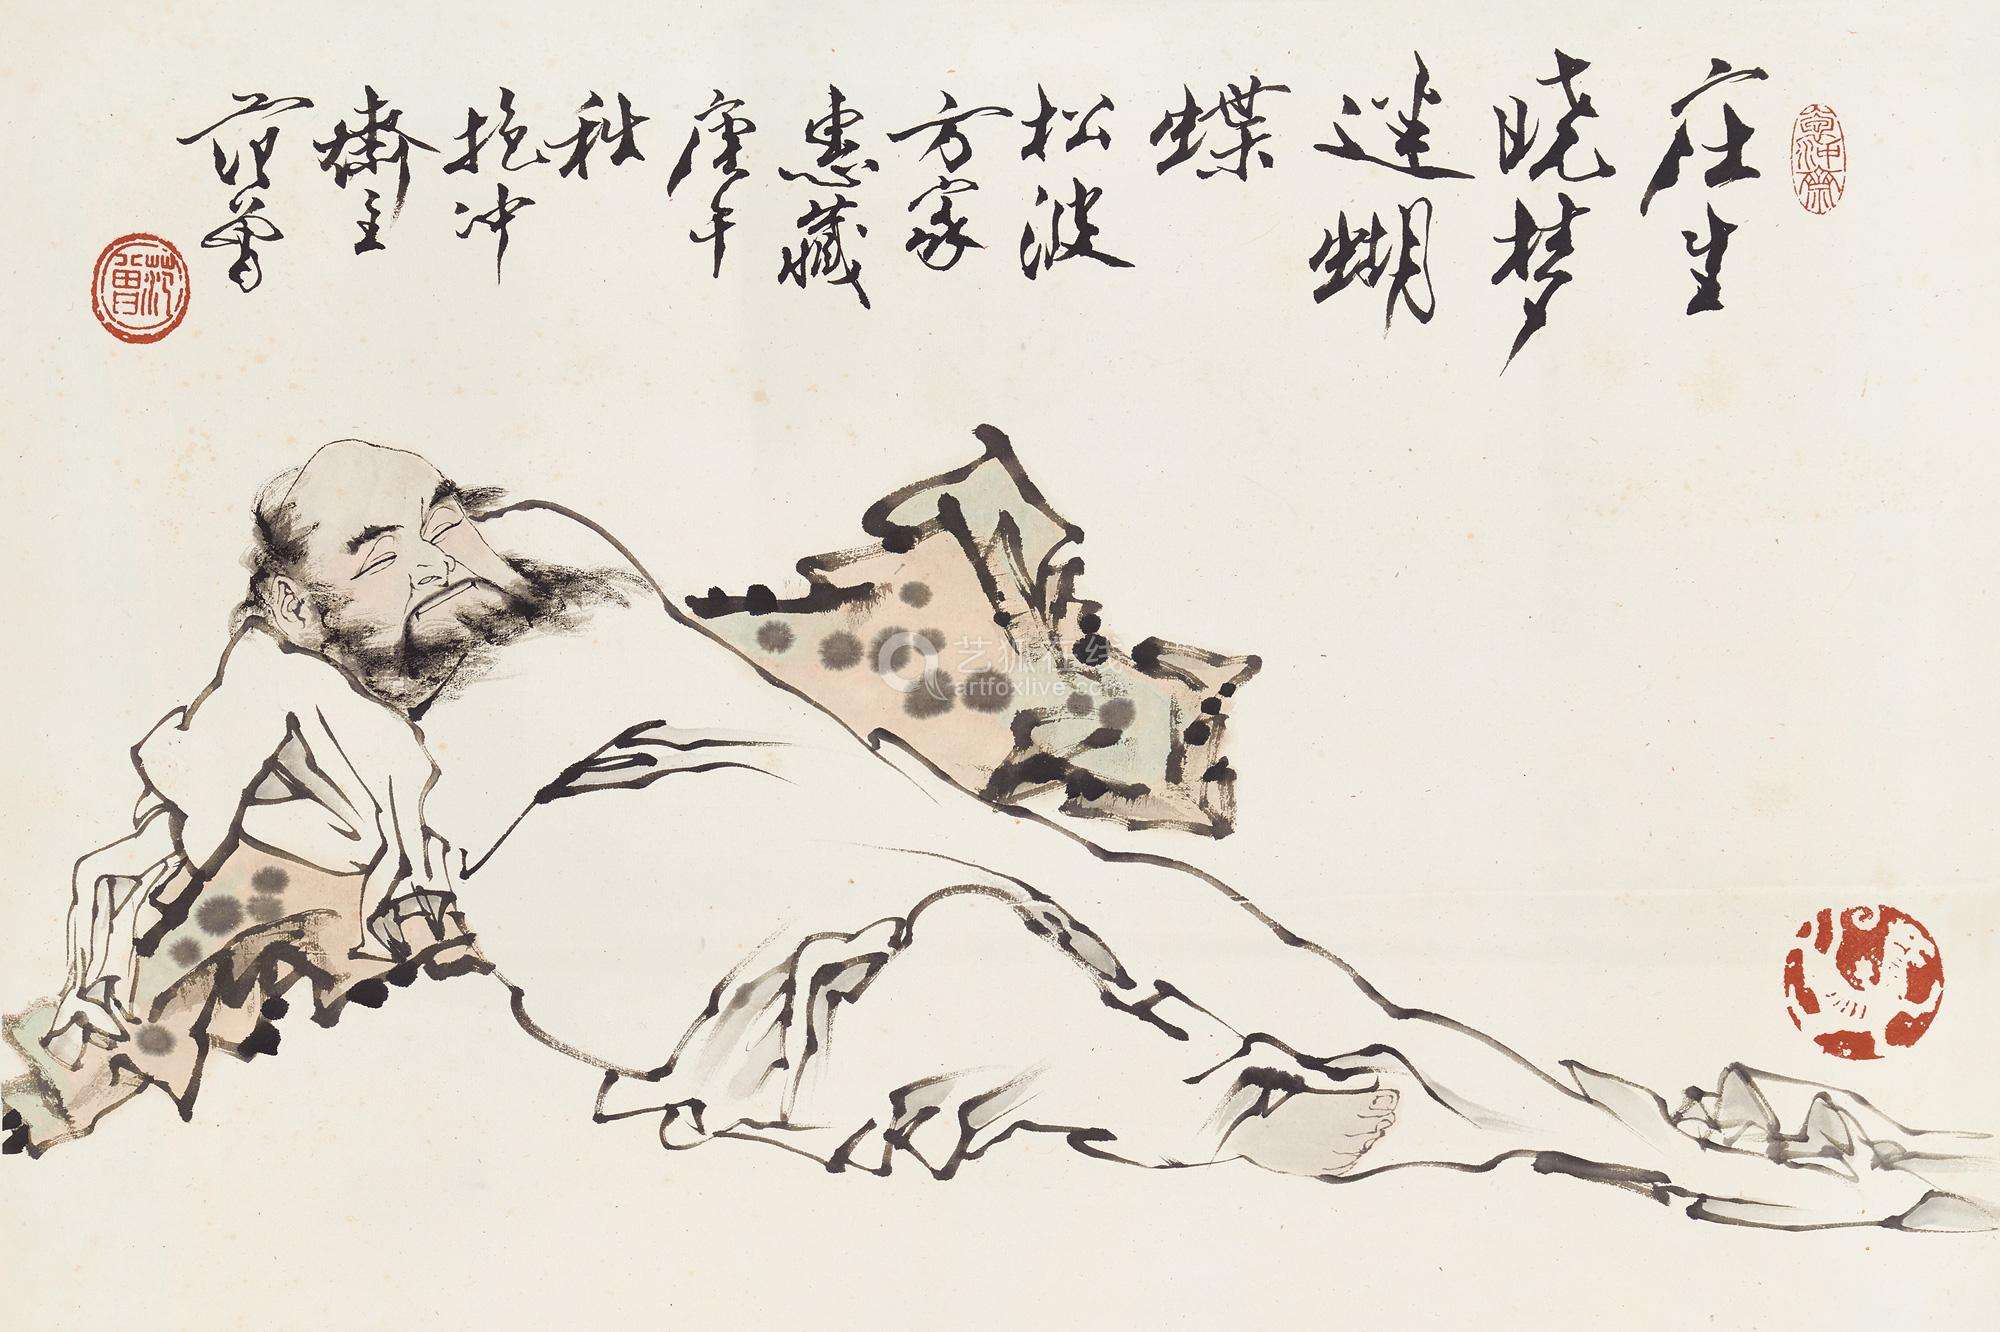 庄生
晓梦
迷蝴
蝶
松波
方家
惠藏
庚午
秋
抱冲
斋主
范曾
范曾
艺狐在线
artfoxlive.com